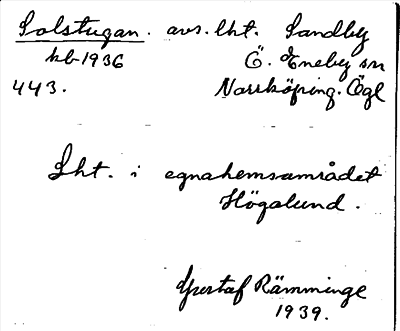 Solstugan. avs. lht. Sandby
kb-1936 Ö. Eneby sn
443. Norrköping. Ögl
Lht. i egnahemsområdet
Högalund.
Gustaf Rämminge
1939.